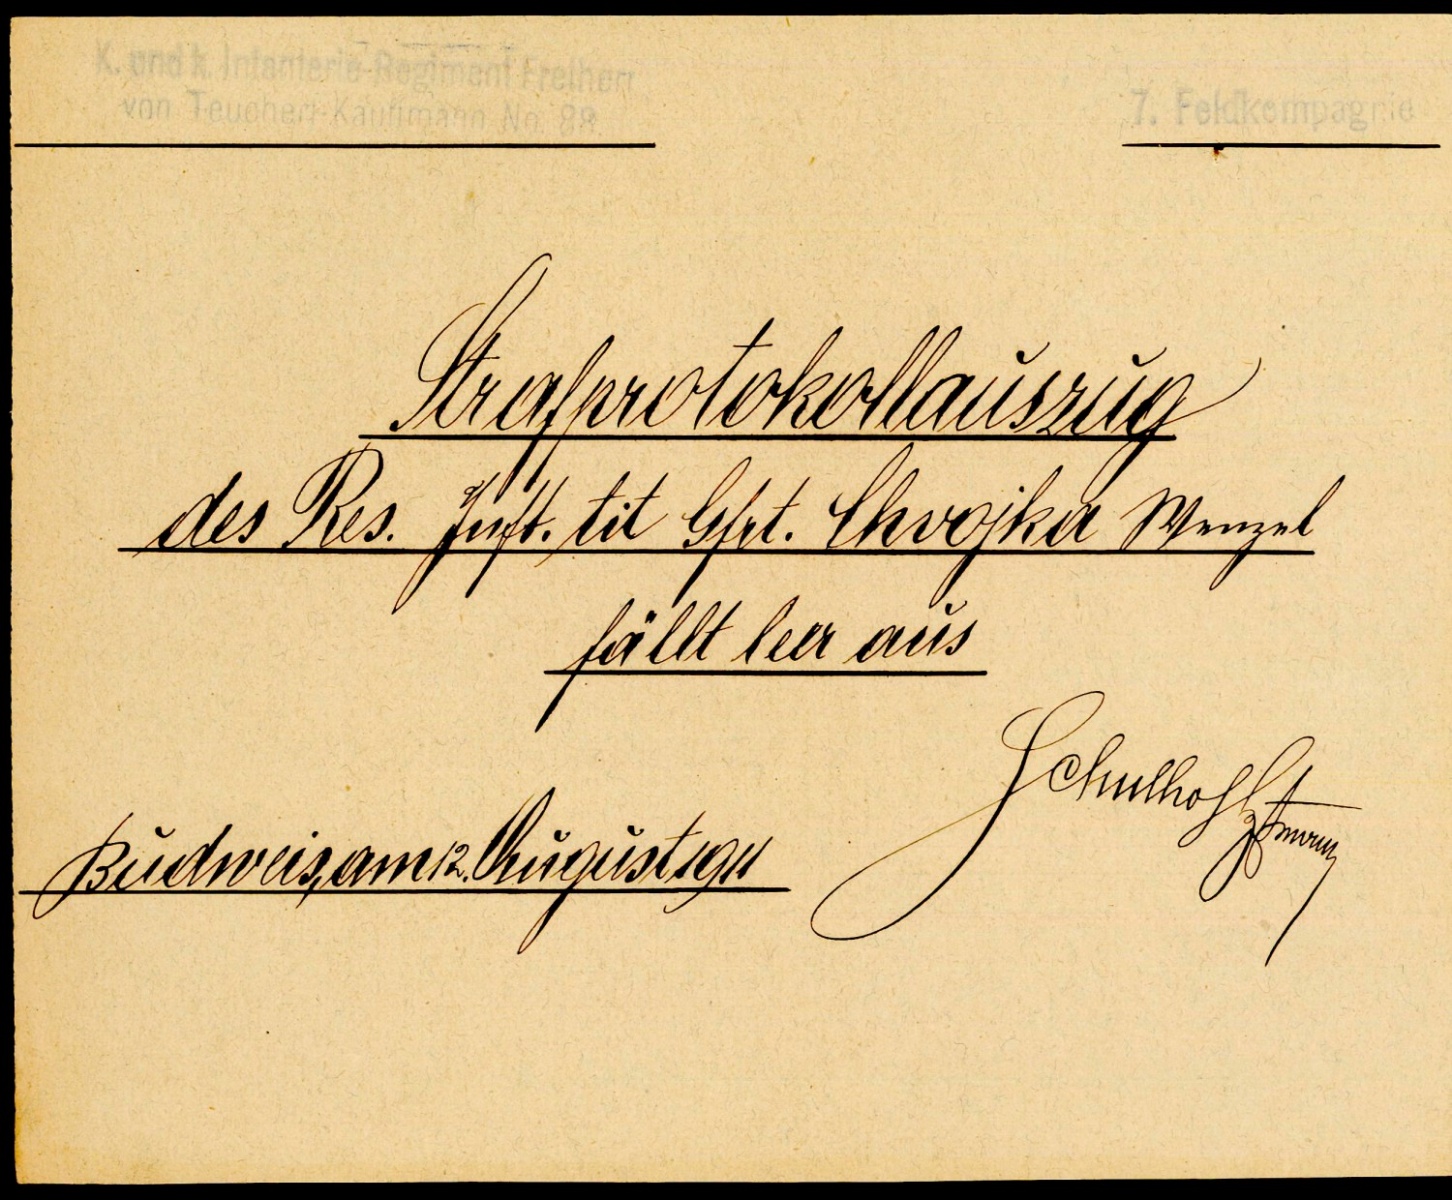 K. und k. Infanterie-Regiment Freiherr
von Teuchert-Kauffmann No. 88.
7. Feldkompagnie
Strafprotokollauszug
des Res. Inft. tit Gfrt. Chvojka Wenzel
fällt leer aus
Schulhof Hptmann
Budweis, am 12. August 1911